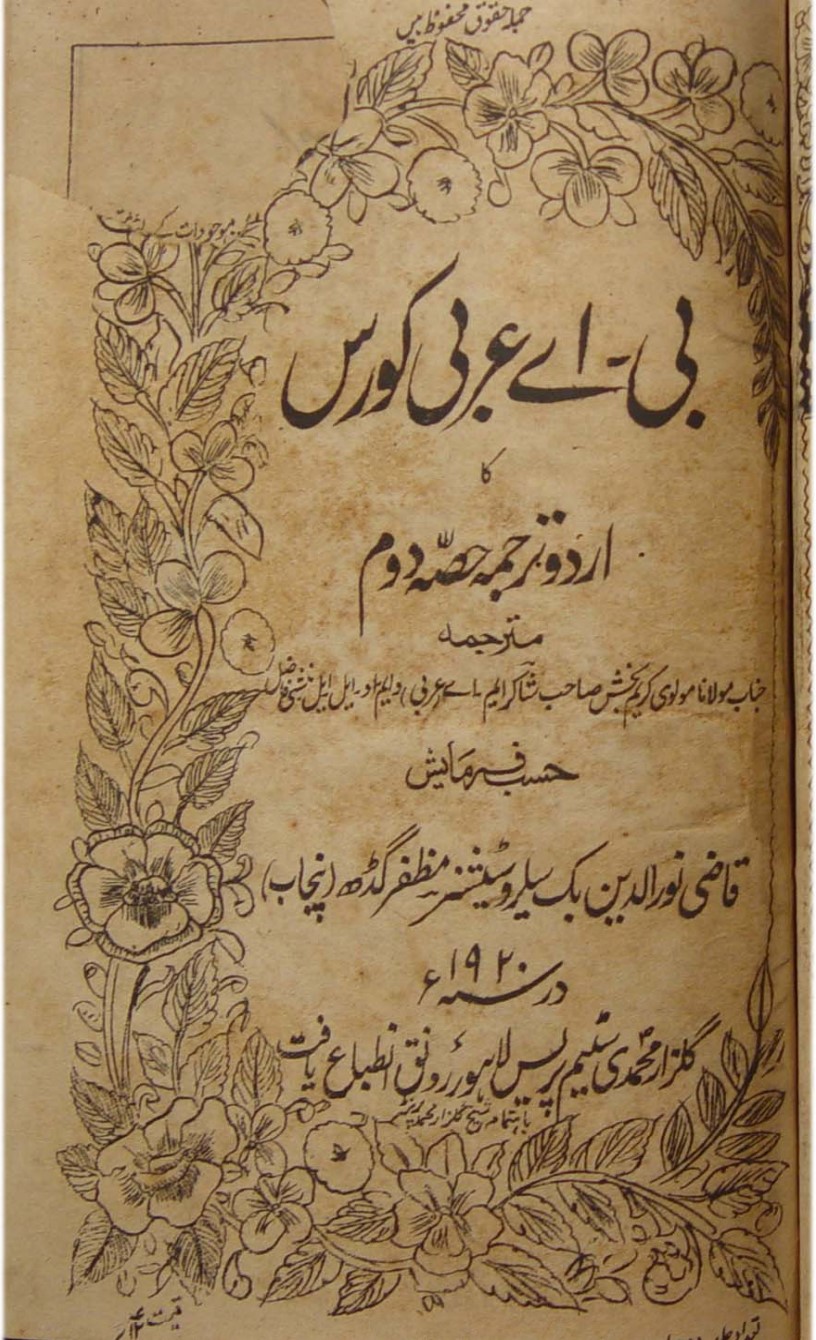 جملہ حقوق محفوظ ہیں
موجودات کے
بی-اے عربی کورس
کا
اردو ترجمہ حصّہ دوم
مترجمہ
جناب مولانا مولوی کریم بخش صاحب شاکر ایم-اے (عربی) و ایم او-ایل ایل منشی فاضل
حسب فرمایش
قاضی نورالدین بک سیلر و سٹیشنر مظفر گڈھ (پنجاب)
در سنہ ۱۹۲۰ء
گلزار محمدی سٹیم پریس لاہور رونق انطباع یافت
باہتمام شیخ گلزار محمد پرنٹر
قیمت
تعداد جلد